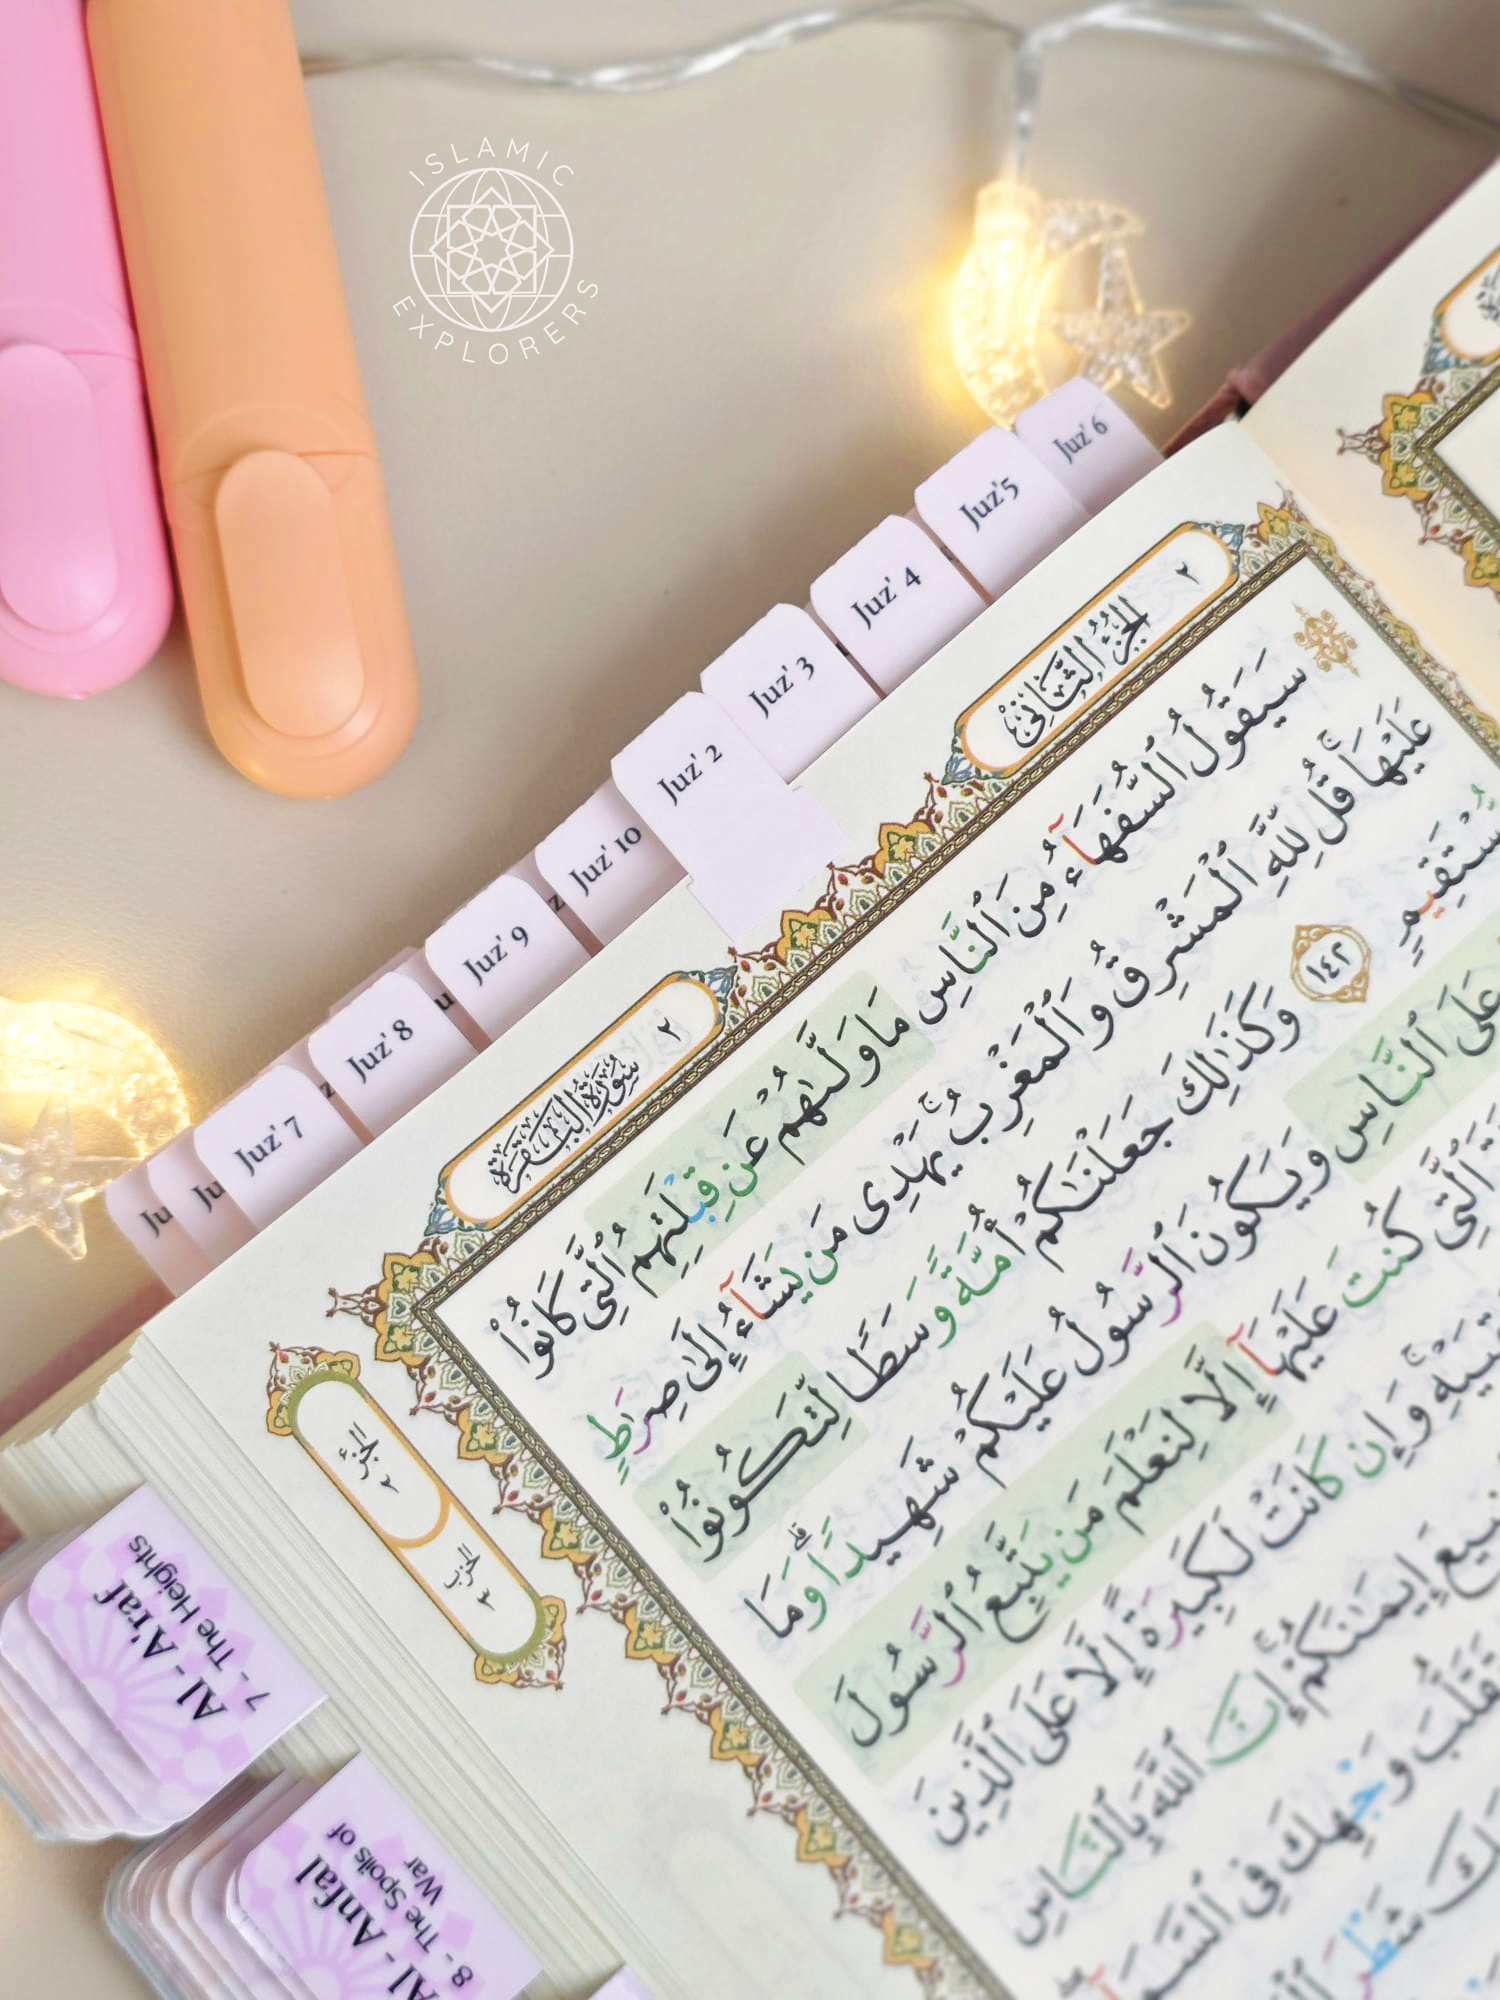 ISLAMIC
EXPLORERS
Juz' 6
Juz' 5
Juz' 4
Juz' 3
Juz' 2
Juz' 10
Juz' 9
Juz' 8
Juz' 7
Ju
Ju
الجزء الثاني ٢
سورة البقرة ٢
الجزء
٢
الحزب
٣
سَيَقُولُ ٱلسُّفَهَآءُ مِنَ ٱلنَّاسِ مَا وَلَّىٰهُمْ عَن قِبْلَتِهِمُ ٱلَّتِى كَانُوا۟
عَلَيْهَا ۚ قُل لِّلَّهِ ٱلْمَشْرِقُ وَٱلْمَغْرِبُ ۚ يَهْدِى مَن يَشَآءُ إِلَىٰ صِرَٰطٍ
مُّسْتَقِيمٍ ١٤٢ وَكَذَٰلِكَ جَعَلْنَـٰكُمْ أُمَّةً وَسَطًا لِّتَكُونُوا۟
عَلَى ٱلنَّاسِ وَيَكُونَ ٱلرَّسُولُ عَلَيْكُمْ شَهِيدًا ۗ وَمَا
ٱلَّتِى كُنتَ عَلَيْهَآ إِلَّا لِنَعْلَمَ مَن يَتَّبِعُ ٱلرَّسُولَ
عَقِبَيْهِ ۚ وَإِن كَانَتْ لَكَبِيرَةً إِلَّا عَلَى ٱلَّذِينَ
إِيمَـٰنَكُمْ ۚ إِنَّ ٱللَّهَ بِٱلنَّاسِ
تَقَلُّبَ وَجْهِكَ فِى ٱلسَّمَآءِ
شَطْرَ
Al - A'raf
7 - The Heights
Al - Anfal
8 - The Spoils of
War